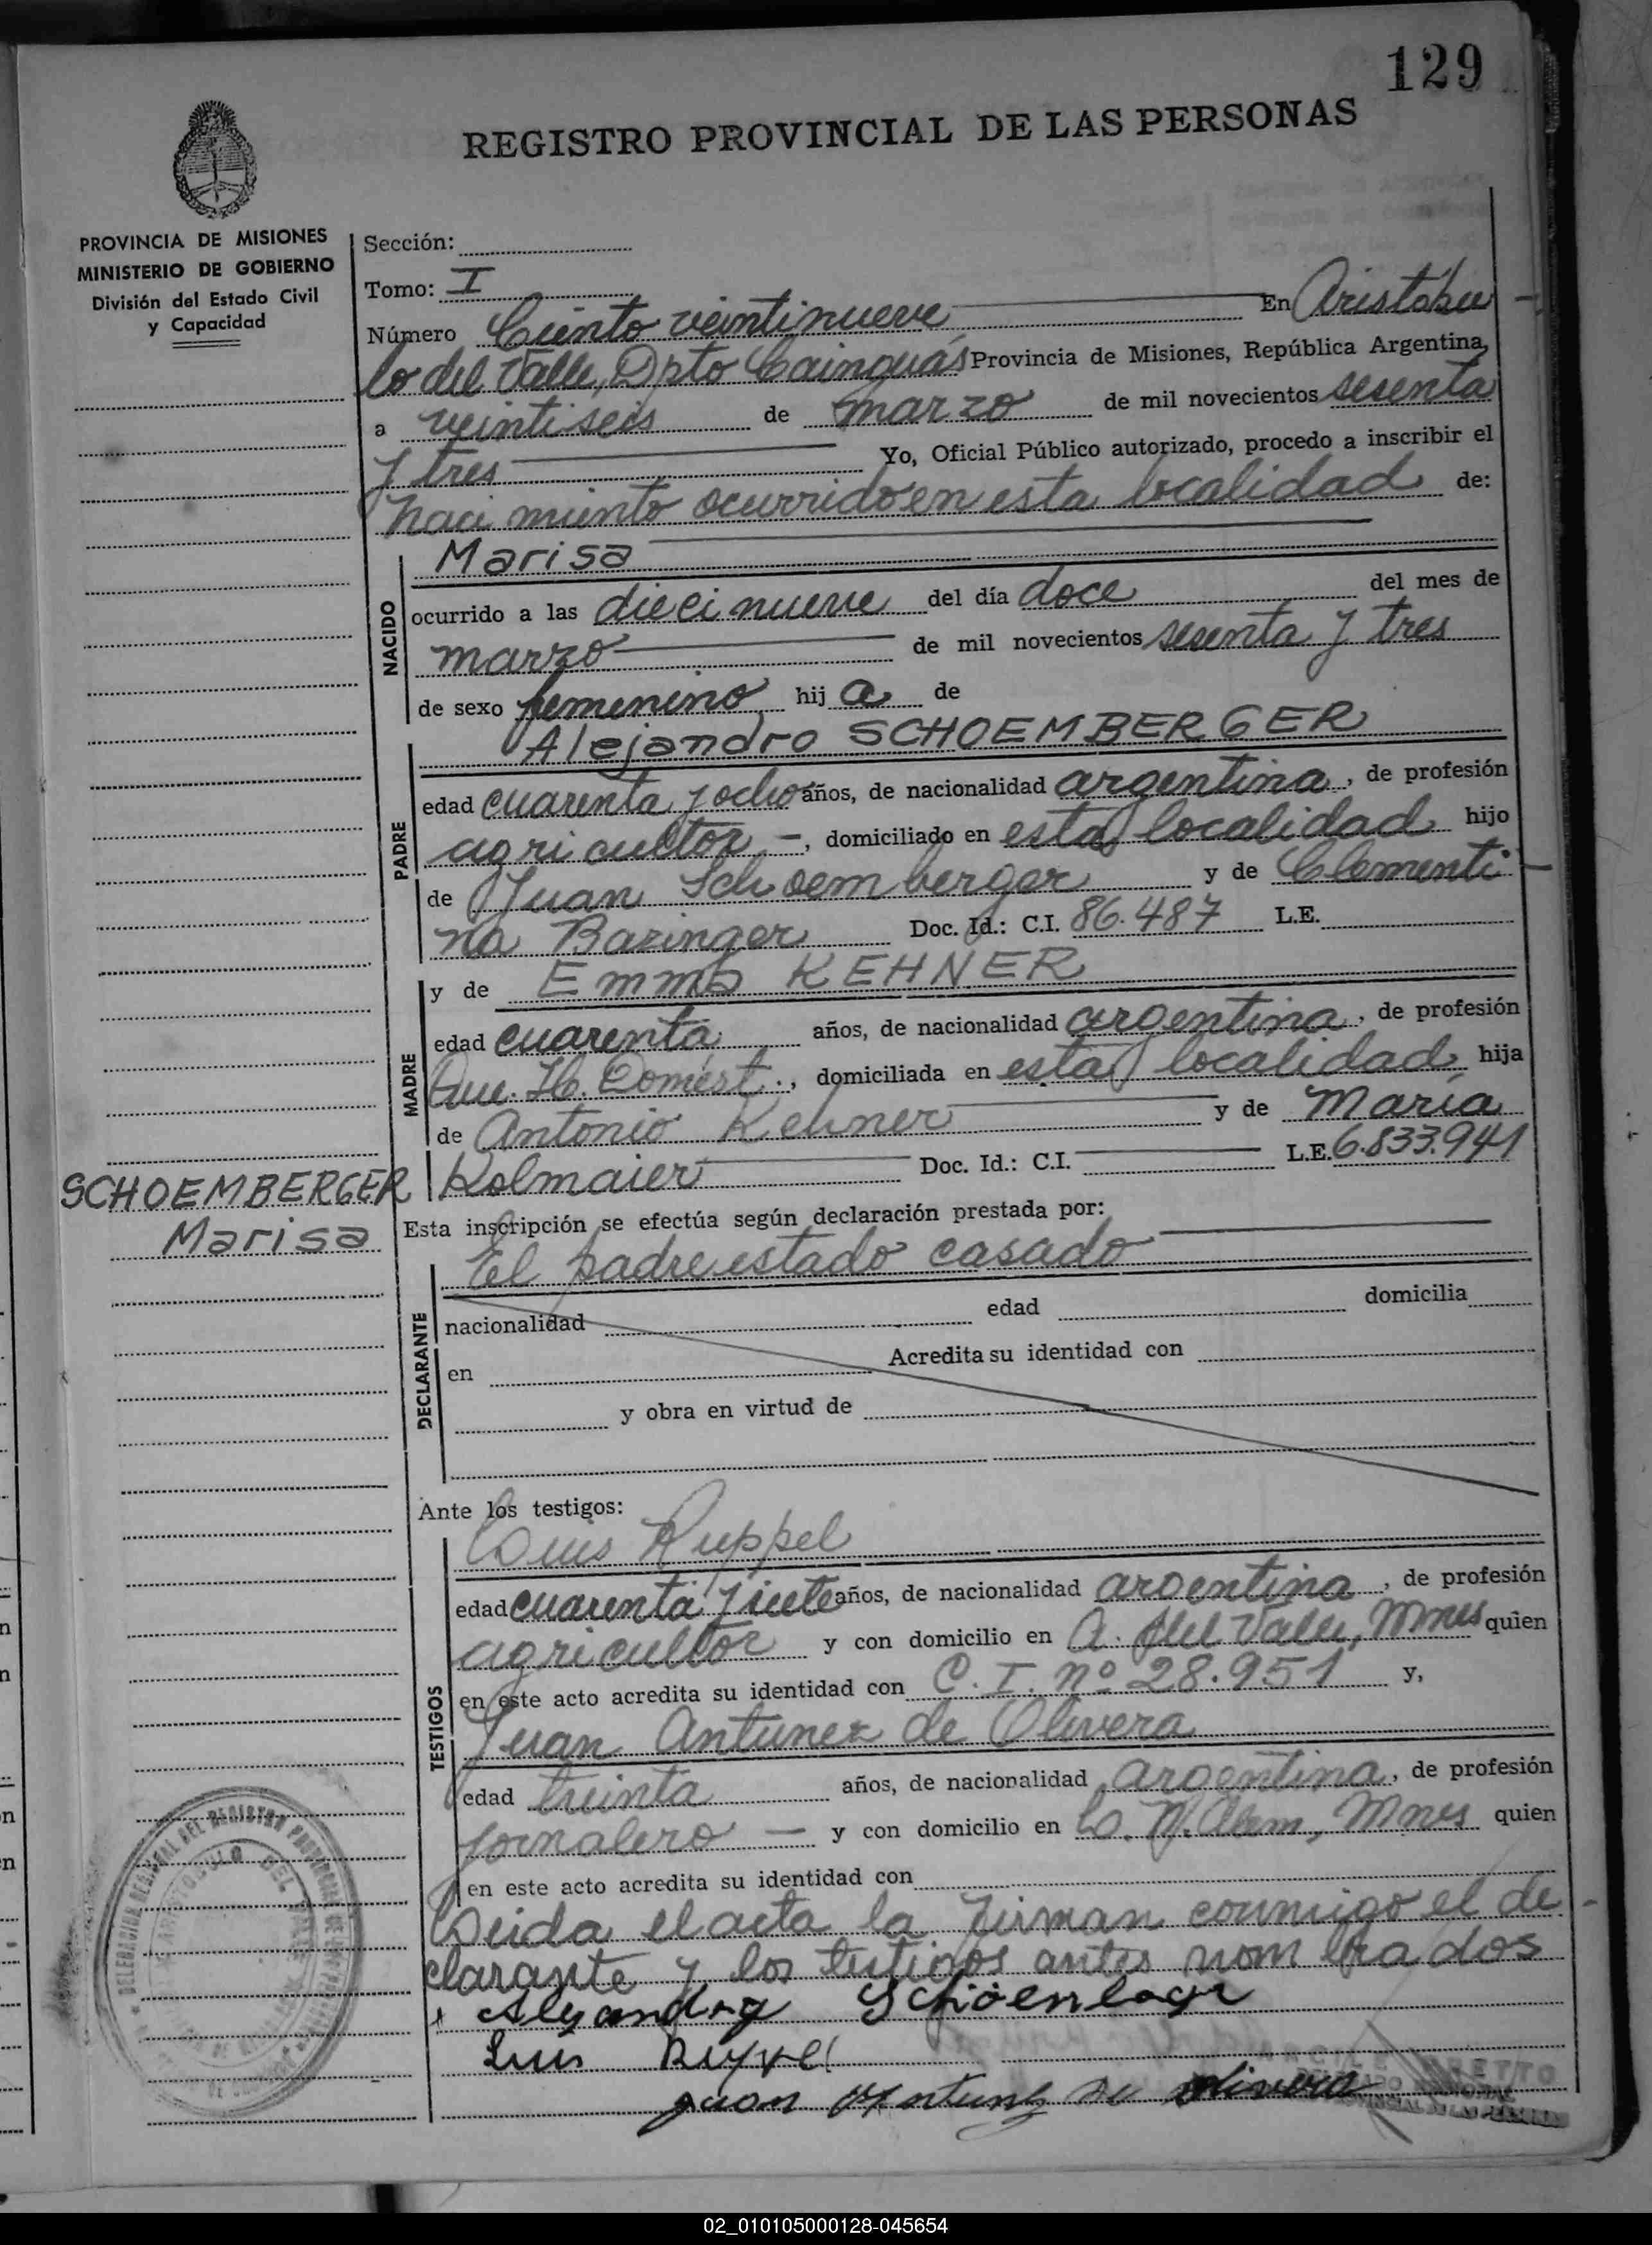 129
REGISTRO PROVINCIAL DE LAS PERSONAS
PROVINCIA DE MISIONES
MINISTERIO DE GOBIERNO
División del Estado Civil
y Capacidad
Sección:
Tomo: I
Número Ciento veintinueve En Aristobu
lo del Valle, Dpto Cainguás Provincia de Misiones, República Argentina,
a veintiseis de marzo de mil novecientos sesenta
y tres Yo, Oficial Público autorizado, procedo a inscribir el
naci miento ocurrido en esta localidad de:
NACIDO
Marisa
ocurrido a las dieci nueve del día doce del mes de
marzo de mil novecientos sesenta y tres
de sexo femenino hij a de
PADRE
Alejandro SCHOEMBERGER
edad cuarenta y ocho años, de nacionalidad argentina, de profesión
agricultor -, domiciliado en esta localidad hijo
de Juan Schoemberger y de Clementi
na Bazinger Doc. Id.: C.I. 86.487 L.E.
MADRE
y de Emma KEHNER
edad cuarenta años, de nacionalidad argentina, de profesión
Que. H. Domést., domiciliada en esta localidad hija
de Antonio Kehner y de María
Kolmaier Doc. Id.: C.I. L.E. 6.833.941
SCHOEMBERGER
Marisa
Esta inscripción se efectúa según declaración prestada por:
DECLARANTE
El padre estado casado
nacionalidad edad domicilia
en Acredita su identidad con
y obra en virtud de
Ante los testigos:
TESTIGOS
Luis Ruppel
edad cuarenta y siete años, de nacionalidad argentina, de profesión
agricultor y con domicilio en A. del Valle, Mnes quien
en este acto acredita su identidad con C. I. nº 28.951 y,
Juan Antunez de Olivera
edad treinta años, de nacionalidad argentina, de profesión
jornalero - y con domicilio en L. N. Alem, Mnes quien
en este acto acredita su identidad con
Leida el acta la firman conmigo el de
clarante y los testigos antes nom brados
Alejandro
Luis
Juan de Olivera
DELEGACION REGIONAL DEL REGISTRO PROVINCIAL DE LAS PERSONAS
ARISTOBULO DEL VALLE
02_010105000128-045654